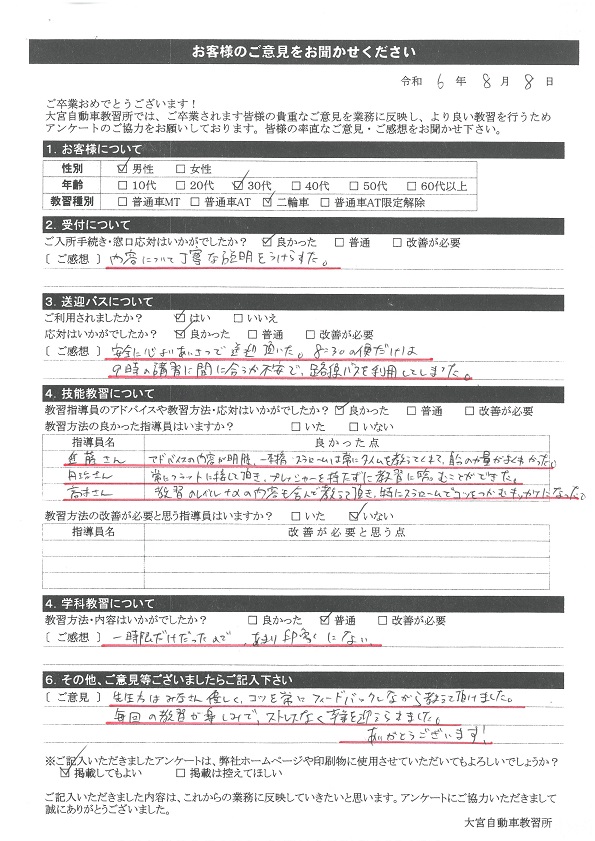 お客様のご意見をお聞かせください
令和 6 年 8 月 8 日
ご卒業おめでとうございます!
大宮自動車教習所では、ご卒業されます皆様の貴重なご意見を業務に反映し、より良い教習を行うため
アンケートのご協力をお願いしております。皆様の率直なご意見・ご感想をお聞かせ下さい。
1. お客様について
性別 ☑男性 □女性
年齢 □10代 □20代 ☑30代 □40代 □50代 □60代以上
教習種別 □普通車MT □普通車AT ☑二輪車 □普通車AT限定解除
2. 受付について
ご入所手続き・窓口応対はいかがでしたか? ☑良かった □普通 □改善が必要
[ご感想] 内容について丁寧な説明をうけられた。
3. 送迎バスについて
ご利用されましたか? ☑はい □いいえ
応対はいかがでしたか? ☑良かった □普通 □改善が必要
[ご感想] 安全に心よいあいさつで送迎頂いた。8:30の便だけは
9時の講習に間に合うか不安で、路線バスを利用してしまった。
4. 技能教習について
教習指導員のアドバイスや教習方法・応対はいかがでしたか? ☑良かった □普通 □改善が必要
教習方法の良かった指導員はいますか? □いた □いない
指導員名 良かった点
近藤さん アドバイスの内容が明瞭、一本橋・スラロームは常にタイムを教えてくれて、自分の力量がよくわかった。
丹治さん 常にフラットに接して頂き、プレッシャーを持たずに教習に臨むことができた。
高村さん 教習のレベル以上の内容も含んで教えて頂き、特にスラロームでコツをつかむキッカケになった。
教習方法の改善が必要と思う指導員はいますか? □いた ☑いない
指導員名 改善が必要と思う点
4. 学科教習について
教習方法・内容はいかがでしたか? □良かった ☑普通 □改善が必要
[ご感想] 一時限だけだったので、あまり印象にない
6. その他、ご意見等ございましたらご記入下さい
[ご意見] 先生方はみなさん優しく、コツを常にフィードバックしながら教えて頂けました。
毎回の教習が楽しみで、ストレスなく卒業を迎えられました。
ありがとうございます!
※ご記入いただきましたアンケートは、弊社ホームページや印刷物に使用させていただいてもよろしいでしょうか?
☑掲載してもよい □掲載は控えてほしい
ご記入いただきました内容は、これからの業務に反映していきたいと思います。アンケートにご協力いただきまして
誠にありがとうございました。
大宮自動車教習所